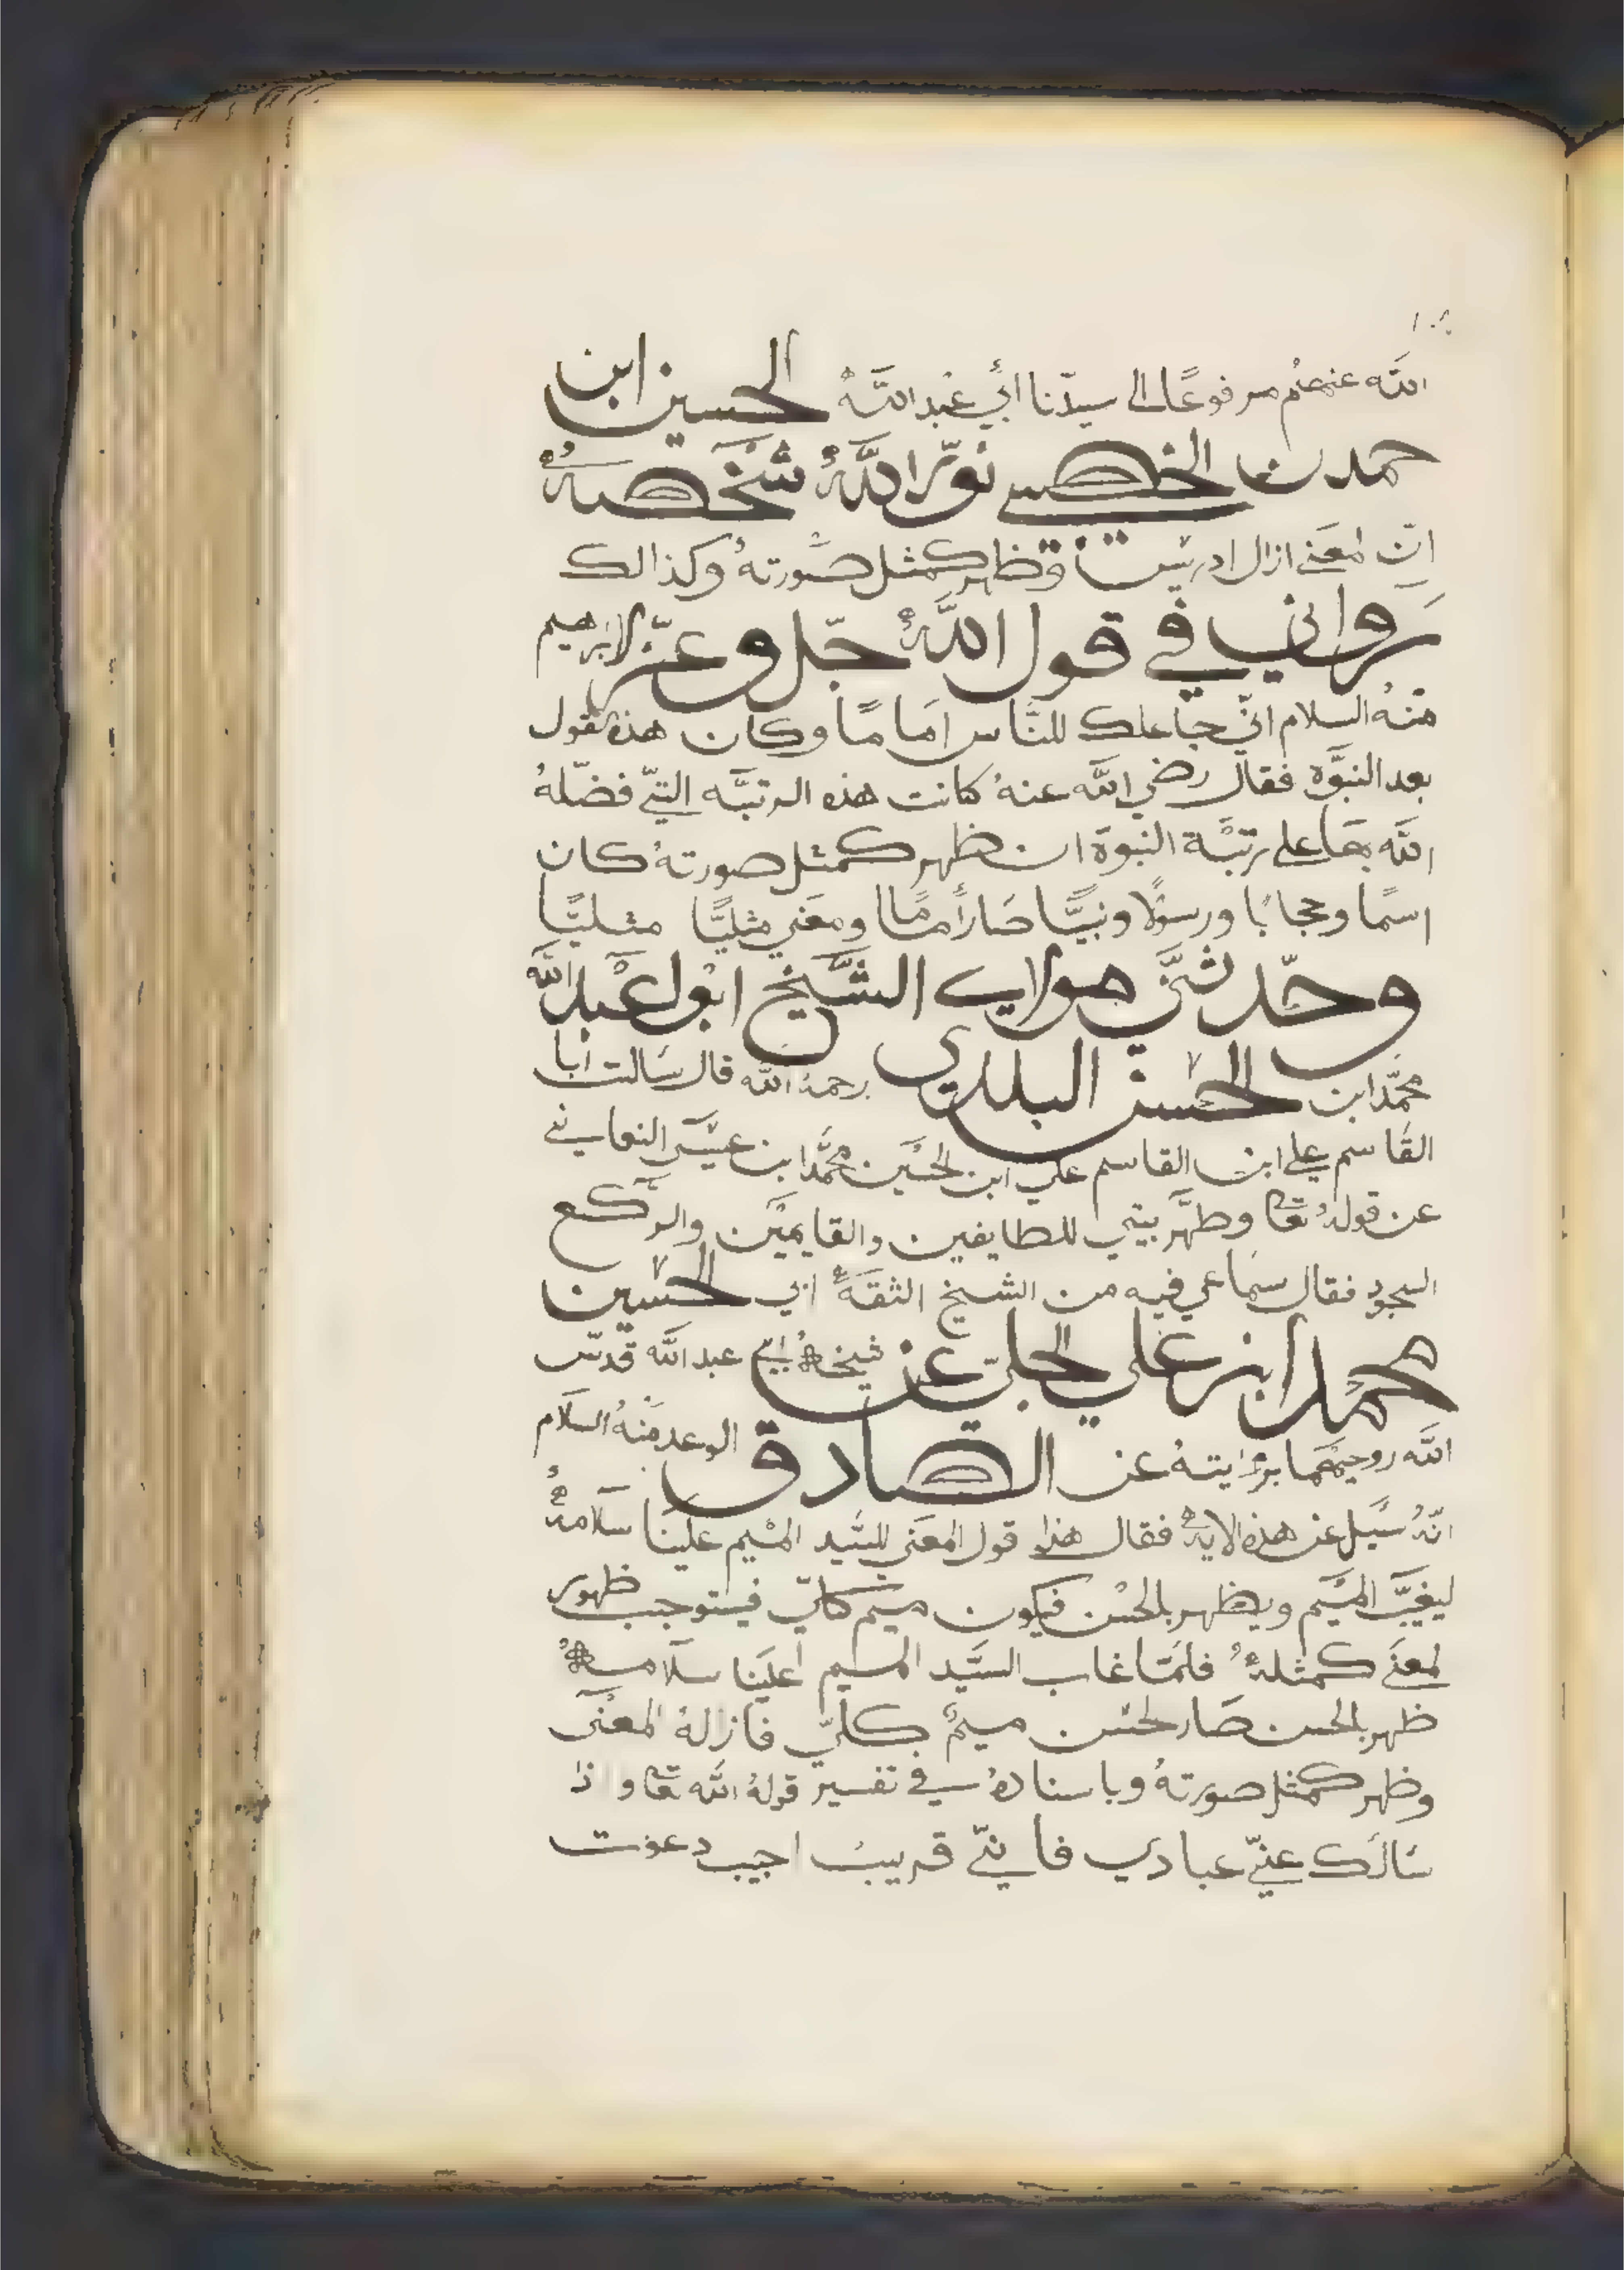 الله عنهم مرفوعًا الى سيدّنا ابي عبد الله الحسين ابن
حمدن الخصيبي نوّر الله شخصه
انّ لمعنى ازال ادريس وظهر كمثل صورته وكذالك
رواني في قول الله جلّ وعزّ لابرهيم
منه السلام انيّ جاعلك للنّاس امامًا وكان هذه لقول
بعد النبوّة فقال رضي الله عنه كانت هذه الرتبّه التيّ فضّله
الله بها على رتبّة النبوة ان ظهر كمثل صورته كان
اسمًا وحجابًا ورسولًا ونبيًّا صار أمامًا ومعنى مثليًّا مثليًّا
وحدّثنيّ مولاي الشّيخ ابو لعبد الله
محمّد ابن الحسن البلدي رحمه الله قال سالت ابا
القاسم علي ابن القاسم علي ابن لحسين محمّد ابن عيسى النعماني
عن قوله تعا وطهّر بيتي للطايفين والقايمين والركع
السجود فقال سماعي فيه من الشيخ الثقة ابي الحسين
محمد ابن علي الجليّ عن شيخه ابي عبد الله قدّس
الله روحيهما برؤايته عن الصادق الوعد منه السلام
انّه سيل عن هذه الايه فقال هذا قول المعنى للسّيد الميم علينا سلامه
ليغيّب الميم ويظهر بالحسن فيكون ميم كليّ فيستوجب ظهور
لمعنى كمثله فلمّا غاب السّيد الميم اعلينا سلامه
ظهر بالحسن صار لحسن ميم كليّ فازاله المعنى
وظهر كمثل صورته وباسناده في تفسير قوله الله تعا و اذا
سالك عنيّ عبادي فاينيّ قريب اجيب دعوت